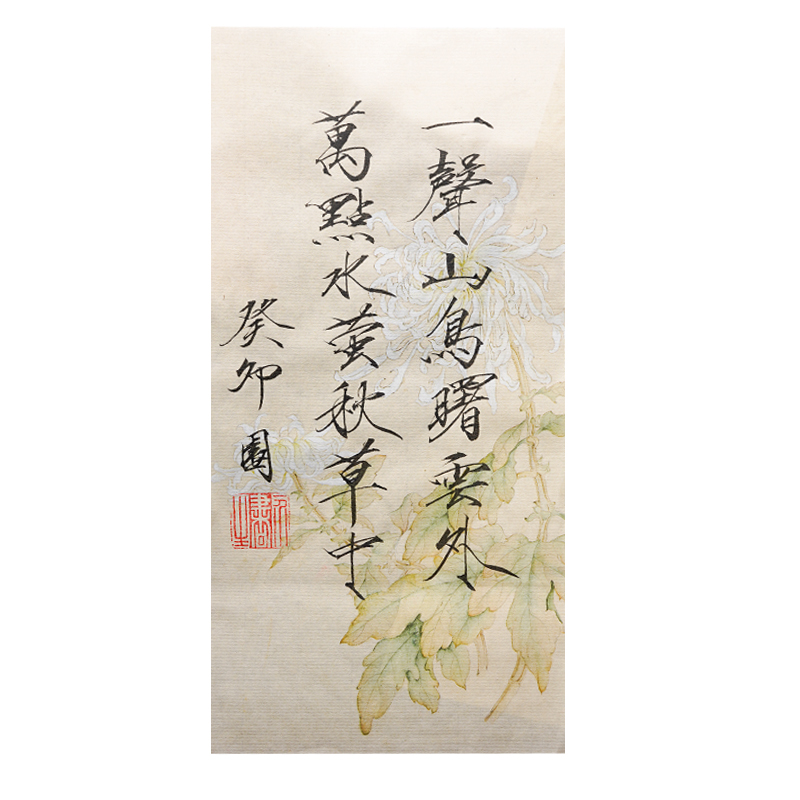 一聲山鳥曙雲外
萬點水萤秋草中
癸卯